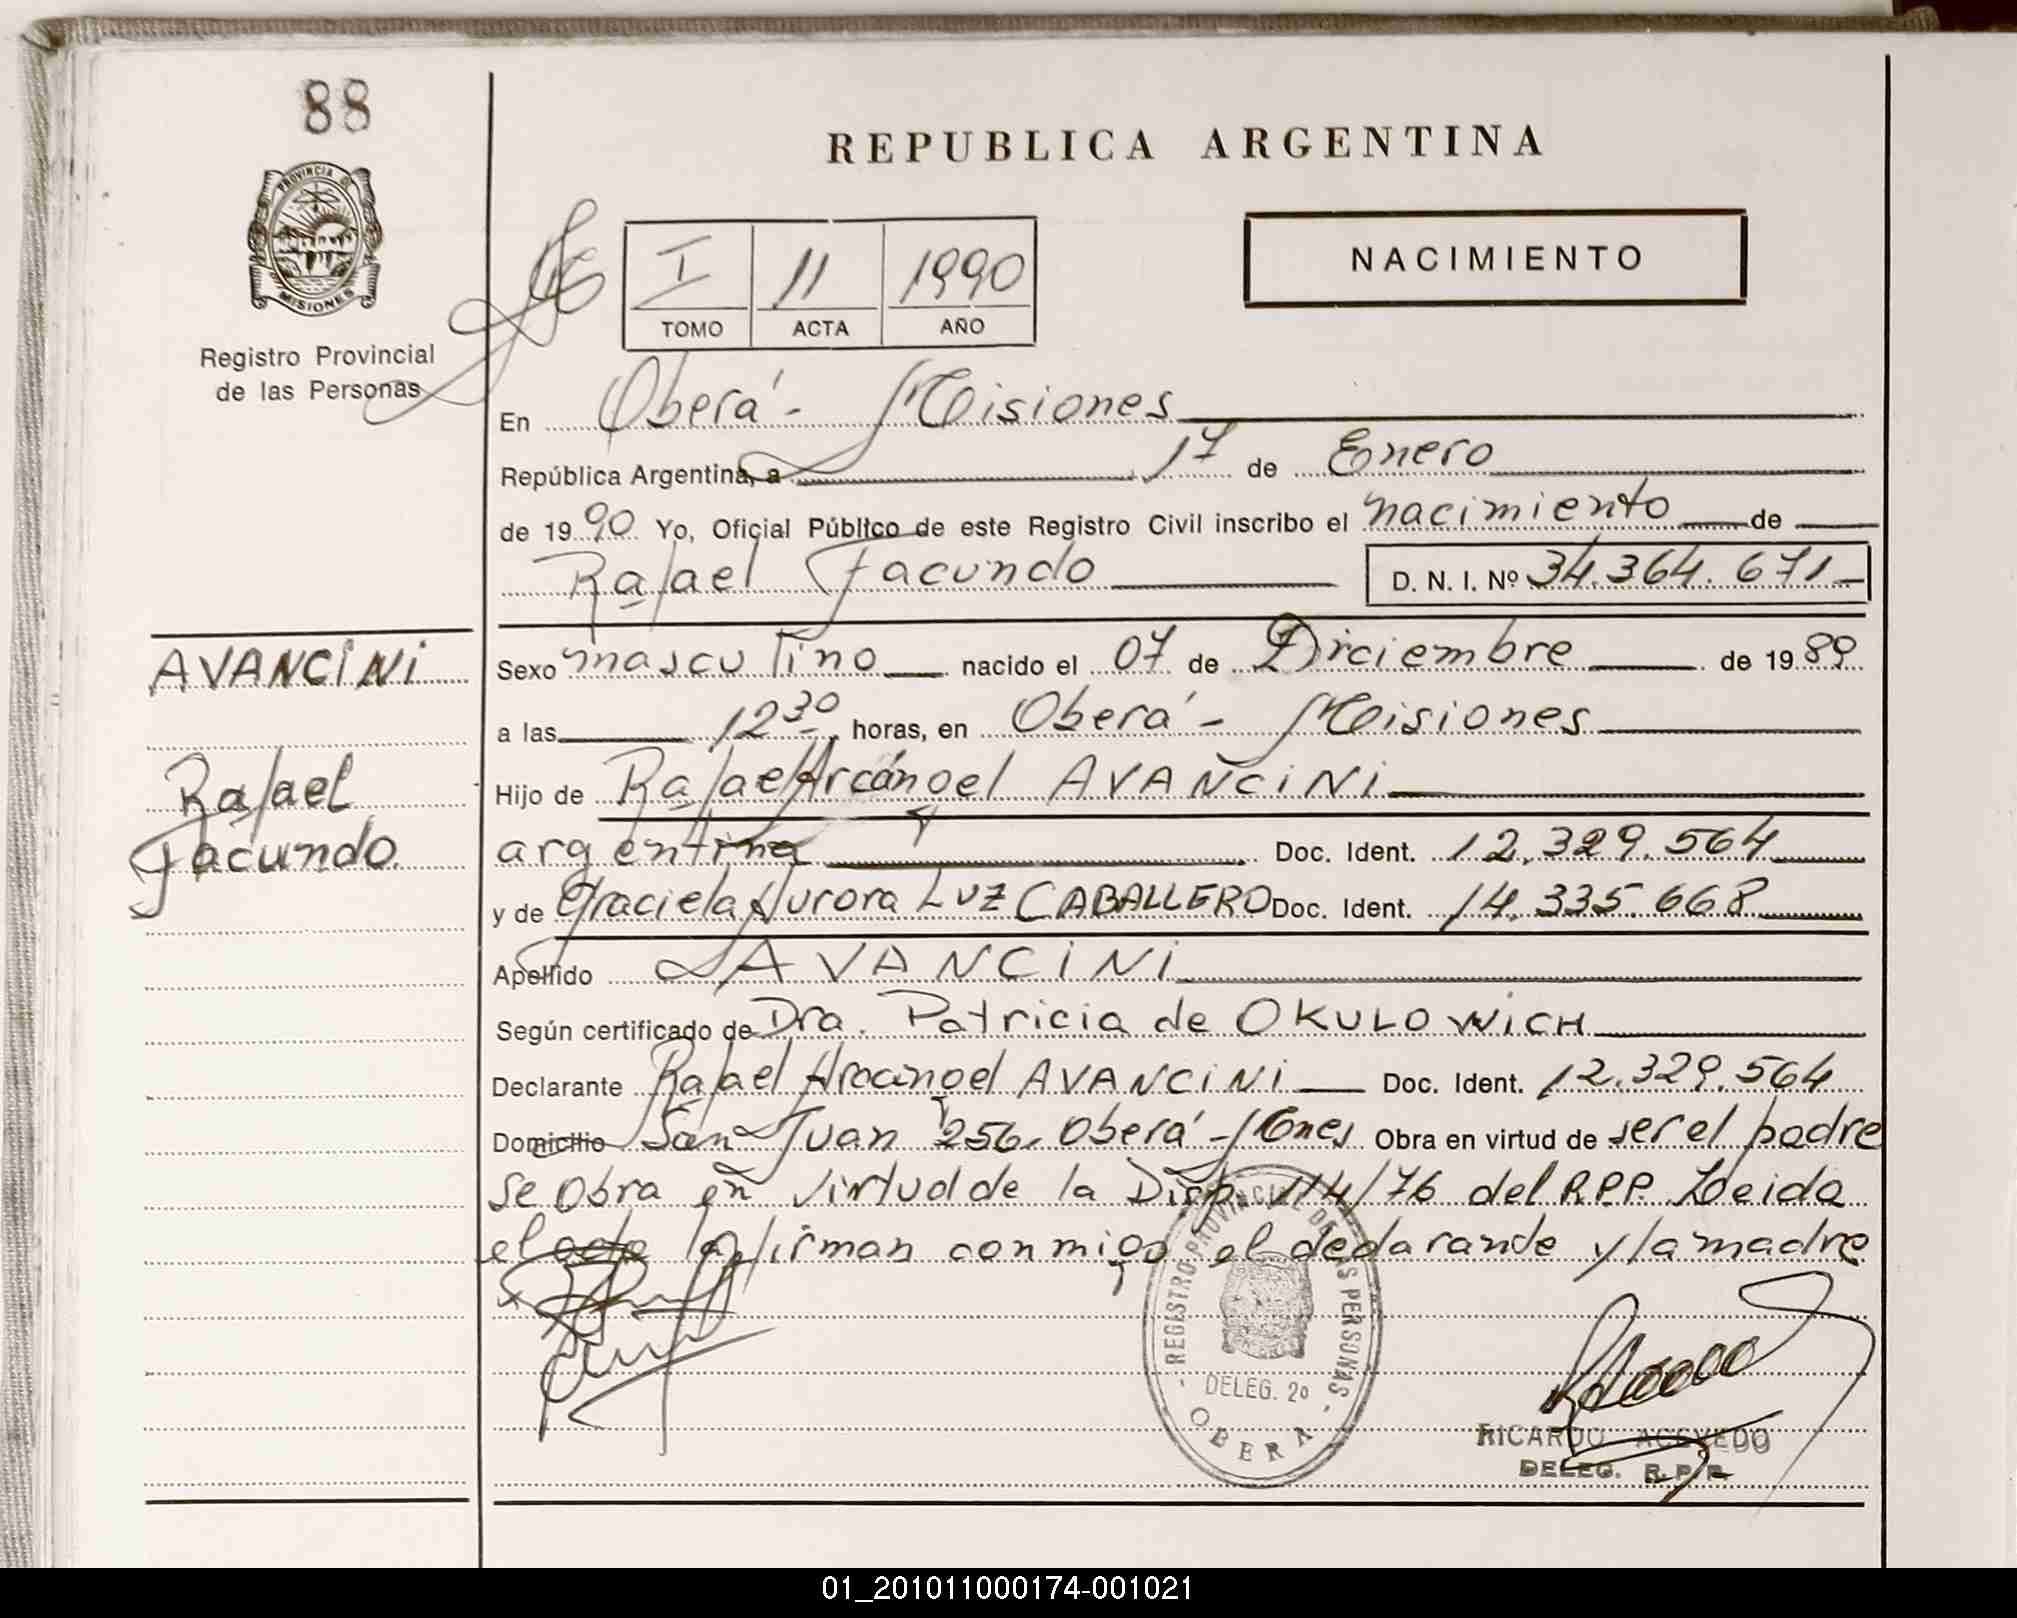 88
REPUBLICA ARGENTINA
PROVINCIA DE
MISIONES
Registro Provincial
de las Personas
I 11 1990
TOMO ACTA AÑO
NACIMIENTO
En Oberá - Misiones
República Argentina, a 17 de Enero
de 1990 Yo, Oficial Público de este Registro Civil inscribo el nacimiento de
Rafael Facundo D. N. I. Nº 34.364.671
AVANCINI
Rafael
Facundo.
Sexo masculino nacido el 07 de Diciembre de 1989
a las 12 30 horas, en Oberá - Misiones
Hijo de Rafael Arcángel AVANCINI
argentina Doc. Ident. 12.329.564
y de Graciela Aurora LUZ CABALLERO Doc. Ident. 14.335.668
Apellido AVANCINI
Según certificado de Dra. Patricia de OKULOWICH
Declarante Rafael Arcangel AVANCINI Doc. Ident. 12.329.564
Domicilio San Juan 256. Oberá - Mnes Obra en virtud de ser el padre
se obra en virtud de la Disp. 114/76 del R.P.P. Leida
el acta la firman conmigo el declarante y la madre
REGISTRO PROVINCIAL DE LAS PERSONAS
DELEG. 2º
OBERA
RICARDO ACEVEDO
DELEG. R.P.P.
01_201011000174-001021